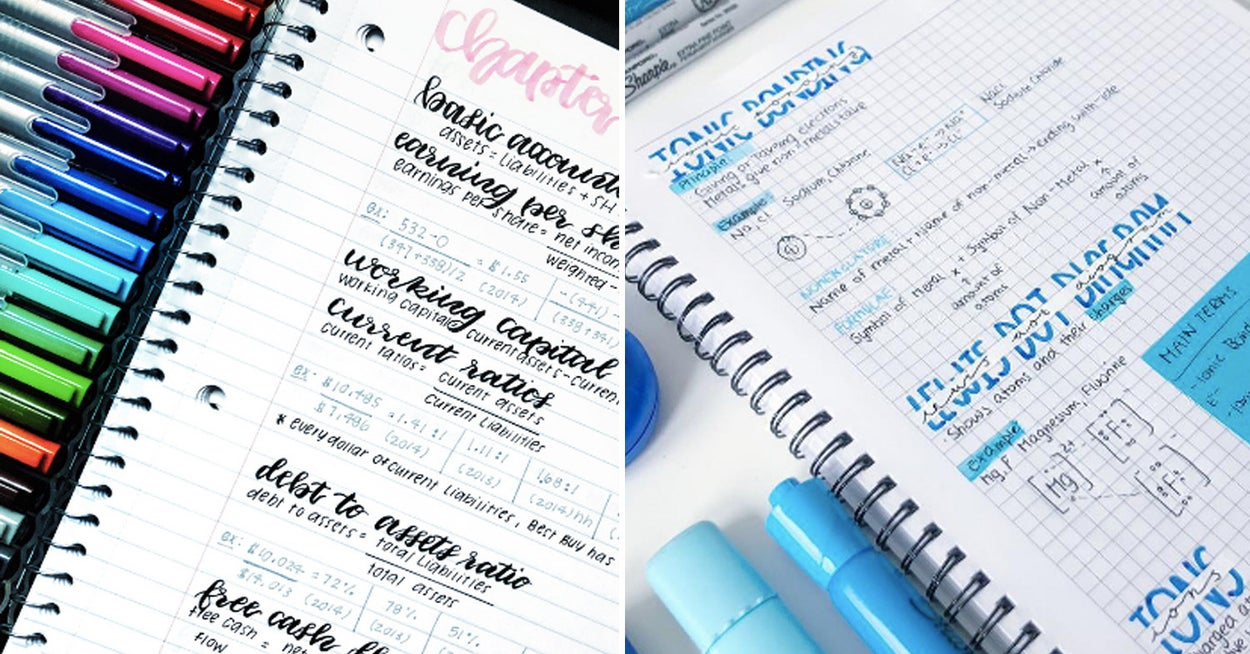 Chapter
basic account
assets = liabilities + SH
earning per sh
earnings per share = net incom
weighted -
ex: 532-0
(347+338)/2 = $1.55
(2014)
-(441)
working capital
working capital current assets - current
current ratios
current ratios = current assets
current liabilities
ex: $10,485
$7,436 = 1.41:1
(2014)
1.11:1
(2013)
1.68:1
(2014) hh
* every dollar of current liabilities, Best Buy has
debt to assets ratio
debt to assets = total liabilities
total assets
ex: $10,024 = 72%
$14,013 (2014)
78%
(2013)
51%
free cash fl
free cash = net
flow
Sharpie
IONIC BONDING
ionic bonding
Principle:
Giving or taking electrons
Metals give non-metals take
Example:
Na, Cl Sodium, Chlorine
NaCl
Sodium Chloride
NOMENCLATURE
Name of metal + Name of non-metal → ending with -ide
FORMULAE
Symbol of Metal x + Symbol of Non-Metal x
amount of
atoms
amount of
atoms
LEWIS DOT DIAGRAM
lewis dot diagram
Shows atoms and their charges
example
Magnesium, Fluorine
[Mg]2+ [F]-
[F]-
MAIN TERMS
- Ionic Bond
IONIC
ions